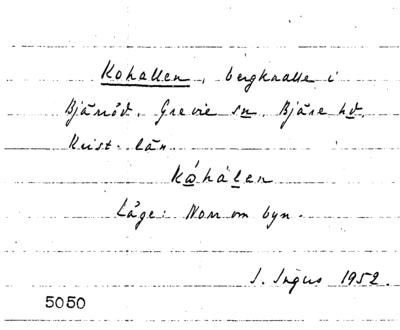 Kohallen, bergknalle i
Bjäröd. Grevie sn. Bjäre hd.
Krist. län
Kåhálen
Läge: Norr om byn.
J. Ingers 1952.
5050